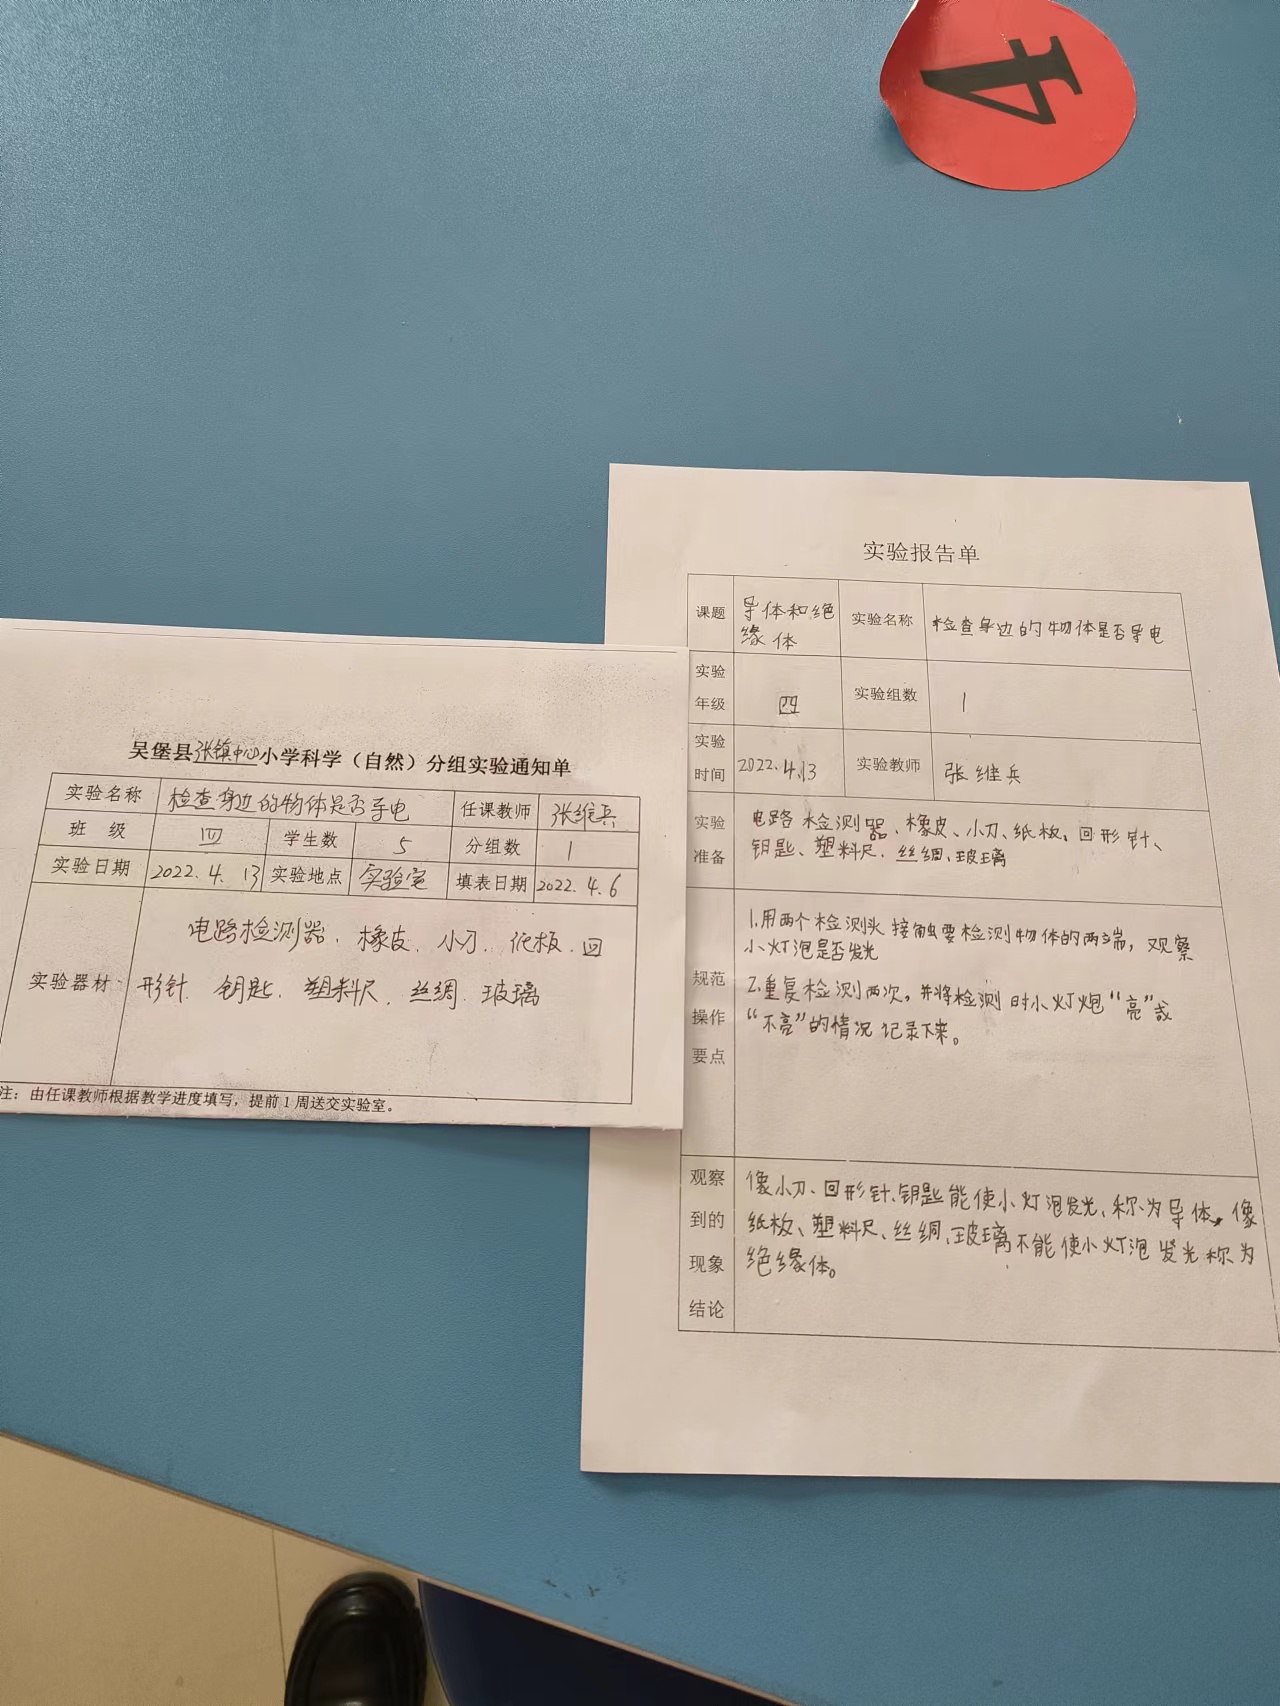 4
吴堡县张镇中心小学科学（自然）分组实验通知单
实验名称 检查身边的物体是否导电 任课教师 张维兵
班 级 四 学生数 5 分组数 1
实验日期 2022.4.13 实验地点 实验室 填表日期 2022.4.6
电路检测器、橡皮、小刀、纸板、回
实验器材 形针、钥匙、塑料尺、丝绸、玻璃
注：由任课教师根据教学进度填写，提前1周送交实验室。
实验报告单
课题 导体和绝缘体 实验名称 检查身边的物体是否导电
实验年级 四 实验组数 1
实验时间 2022.4.13 实验教师 张维兵
实验准备
电路检测器、橡皮、小刀、纸板、回形针、
钥匙、塑料尺、丝绸、玻璃
规范操作要点
1.用两个检测头接触要检测物体的两端，观察
小灯泡是否发光
2.重复检测两次，并将检测时小灯炮“亮”或
“不亮”的情况记录下来。
观察到的现象结论
像小刀、回形针、钥匙能使小灯泡发光、称为导体。像
纸板、塑料尺、丝绸、玻璃不能使小灯泡发光称为
绝缘体。